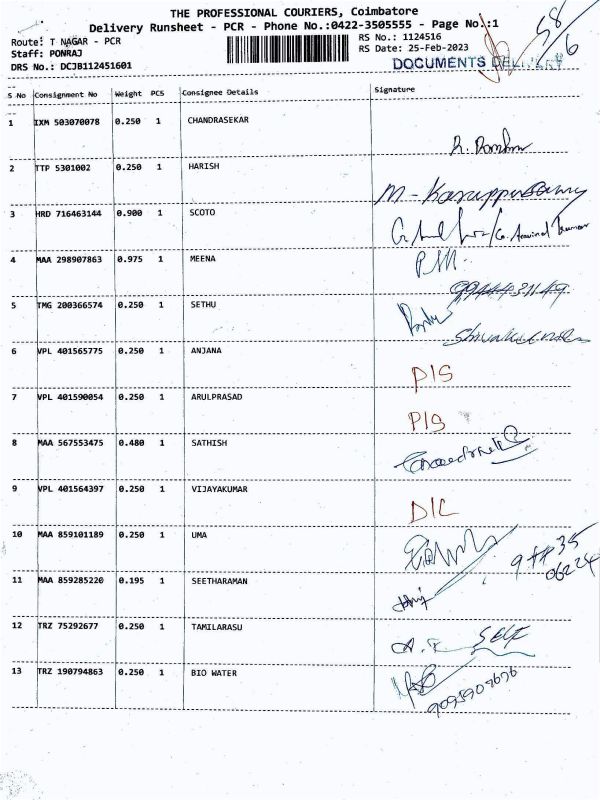 THE PROFESSIONAL COURIERS, Coimbatore
Delivery Runsheet - PCR - Phone No.:0422-3505555 - Page No.:1
Route: T NAGAR - PCR
Staff: PONRAJ
DRS No.: DCJB112451601
RS No.: 1124516
RS Date: 25-Feb-2023
58
6
DOCUMENTS
S No Consignment No Weight PCS Consignee Details Signature
1 IXM 503070078 0.250 1 CHANDRASEKAR
2 TTP 5301002 0.250 1 HARISH M - Karuppusamy
3 HRD 716463144 0.900 1 SCOTO
4 MAA 298907863 0.975 1 MEENA P.M.
5 TMG 200366574 0.250 1 SETHU
6 VPL 401565775 0.250 1 ANJANA P/S
7 VPL 401590054 0.250 1 ARULPRASAD P/S
8 MAA 567553475 0.480 1 SATHISH
9 VPL 401564397 0.250 1 VIJAYAKUMAR D/L
10 MAA 859101189 0.250 1 UMA
11 MAA 859285220 0.195 1 SEETHARAMAN
12 TRZ 75292677 0.250 1 TAMILARASU SELF
13 TRZ 190794863 0.250 1 BIO WATER